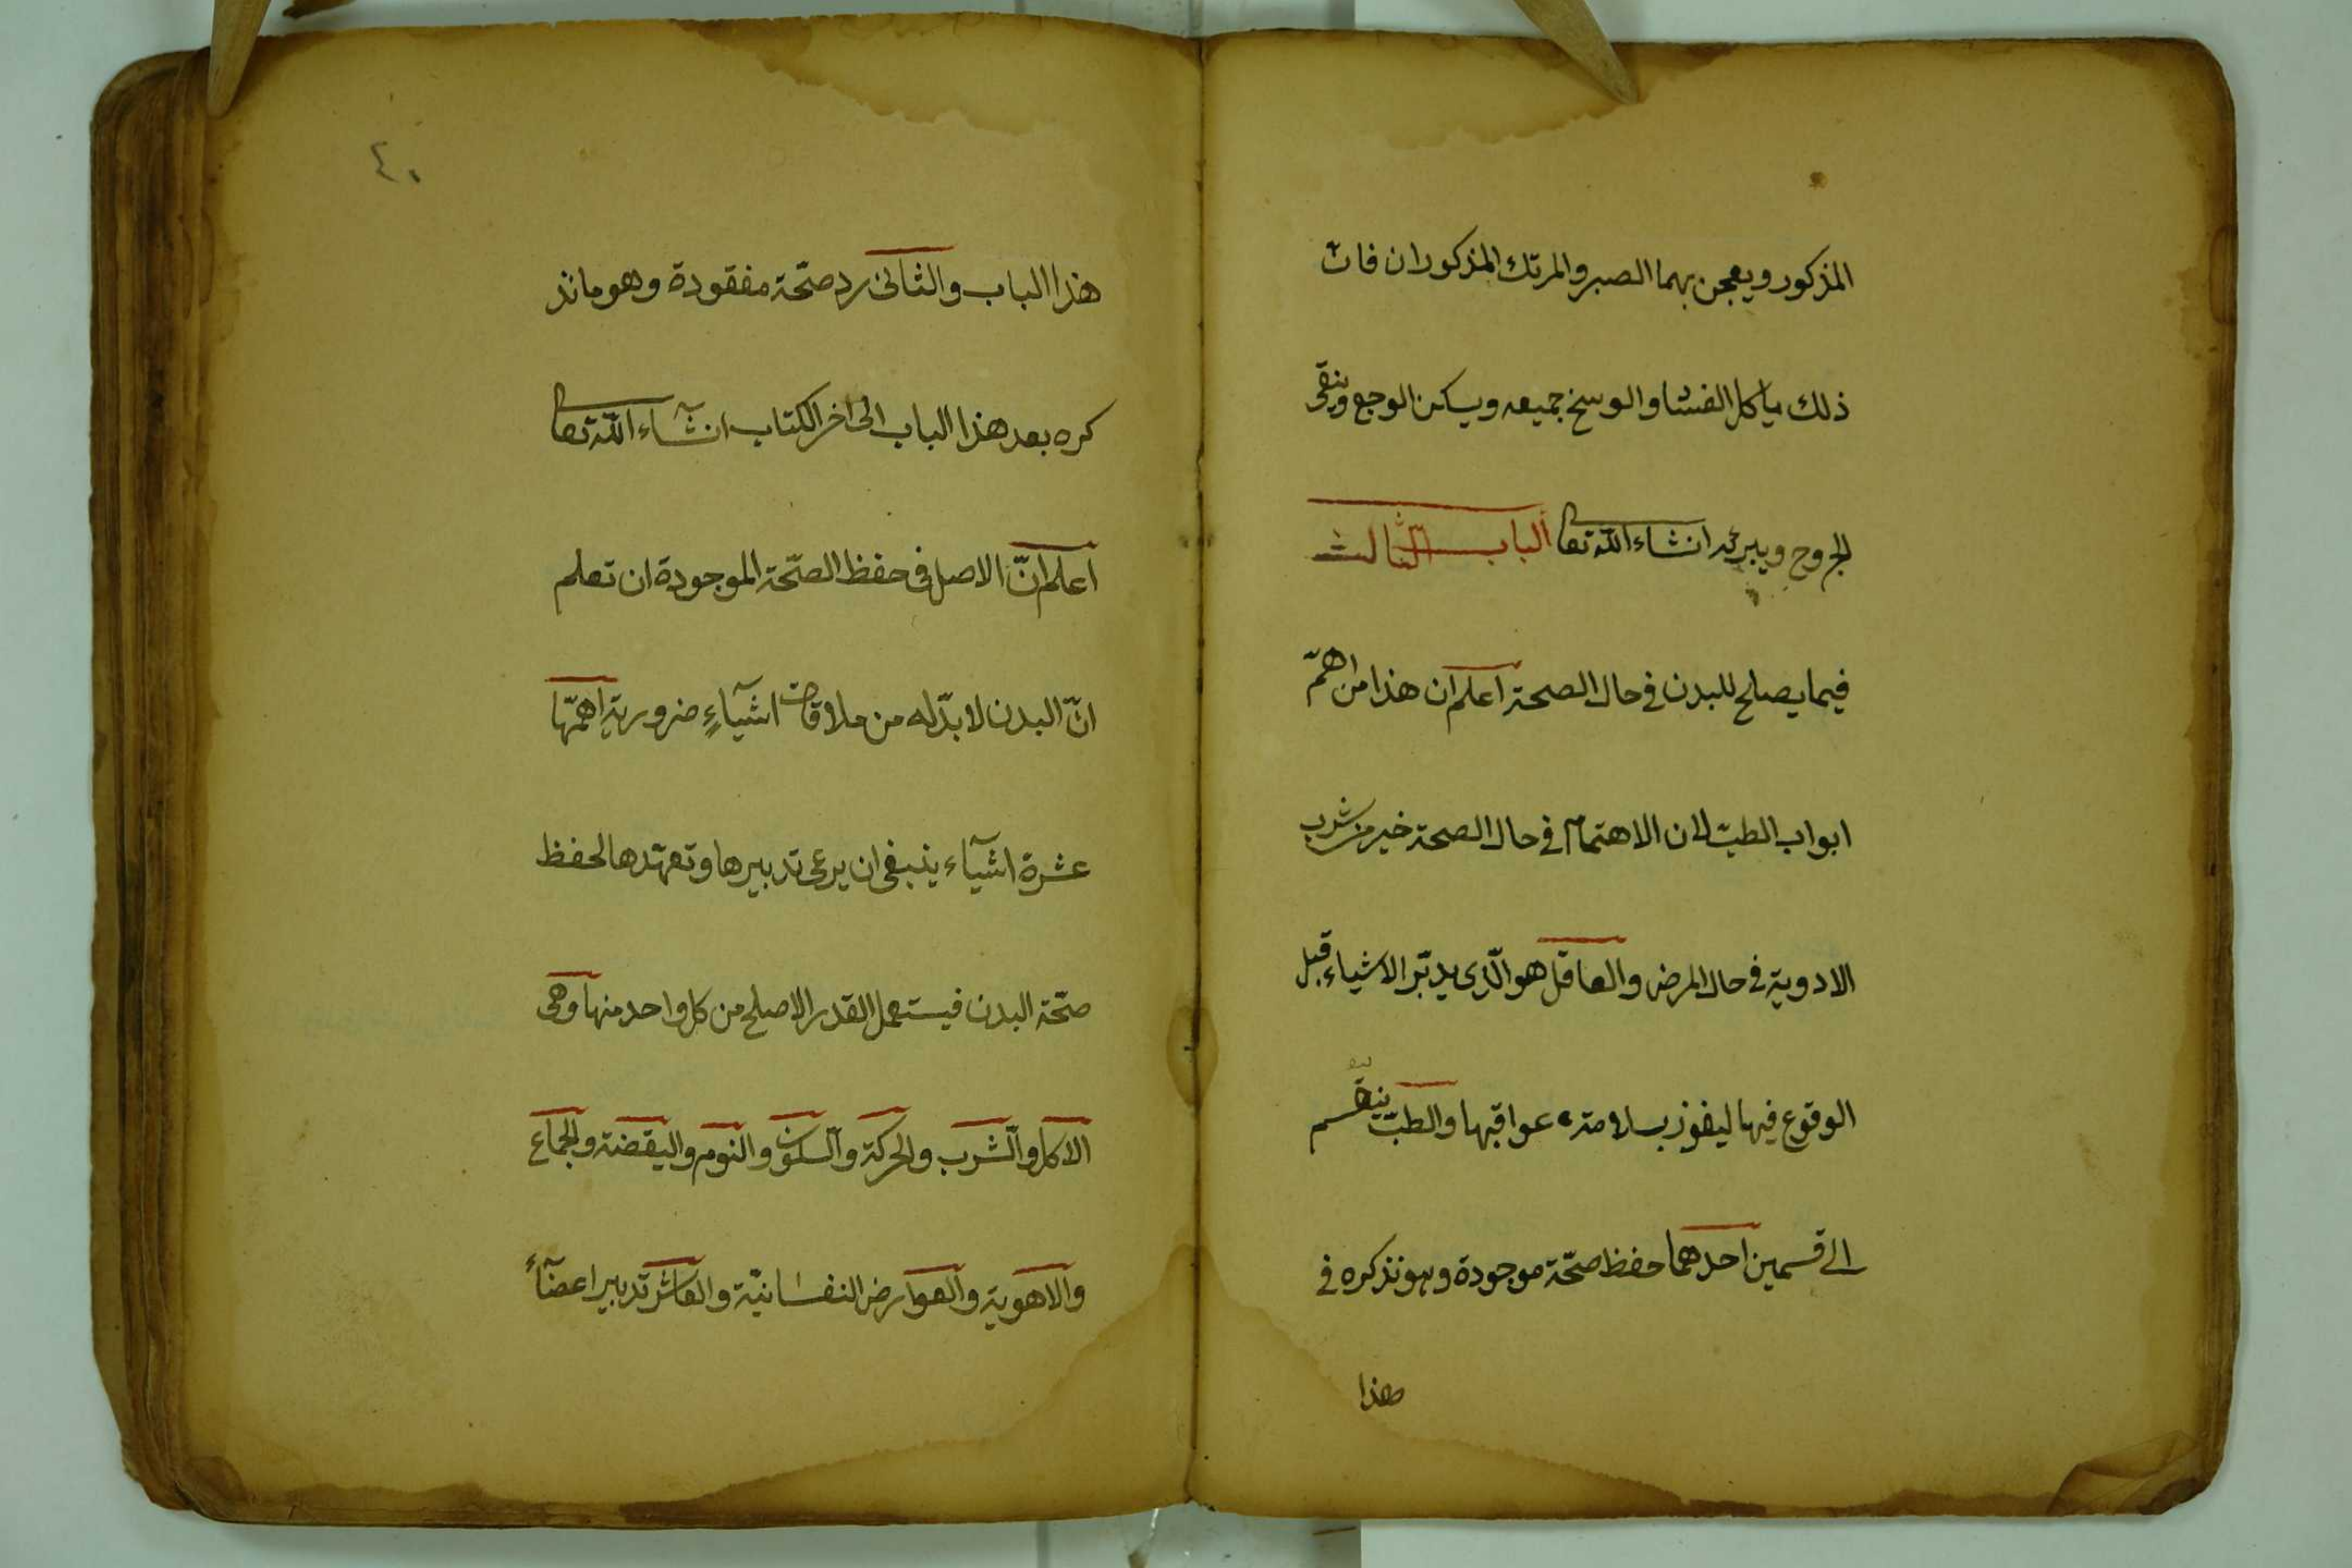 المذكور ويعجن بهما الصبر والمرتك المذكوران فان
ذلك ياكل الفشا والوسخ جميعه ويسكن الوجع وينقى
الجروح ويبرئه انشاء الله تعا الباب الثالث
فيما يصلح للبدن في حال الصحة اعلم ان هذا من اهمّ
ابواب الطبّ لان الاهتمام في حال الصحة خير من شرب
الادوية في حال المرض والعاقل هو الّذى يدبّر الاشياء قبل
الوقوع فيها ليفوز بسلامة عواقبها والطبّ ينقسم
الى قسمين احدهما حفظ صحّة موجودة وهو نذكره في
هذا
٤٠
هذا الباب والثانى رد صحّة مفقودة وهو ماند
كره بعد هذا الباب الى اخر الكتاب انشآء اللّه تعا
اعلم انّ الاصل فى حفظ الصحّة الموجودة ان تعلم
انّ البدن لا بدّ له من ملاقات اشيآءٍ ضرورية اهمّها
عشرة اشيآء ينبغى ان يرعى تدبيرها وتعهّدها لحفظ
صحّة البدن فيستعمل القدر الاصلح من كل واحد منها وهى
الاكل والشرب والحركة والسكون والنوم واليقضة والجماع
والاهوية والعوارض النفسانيّة والعاشر تدبير اعضآء